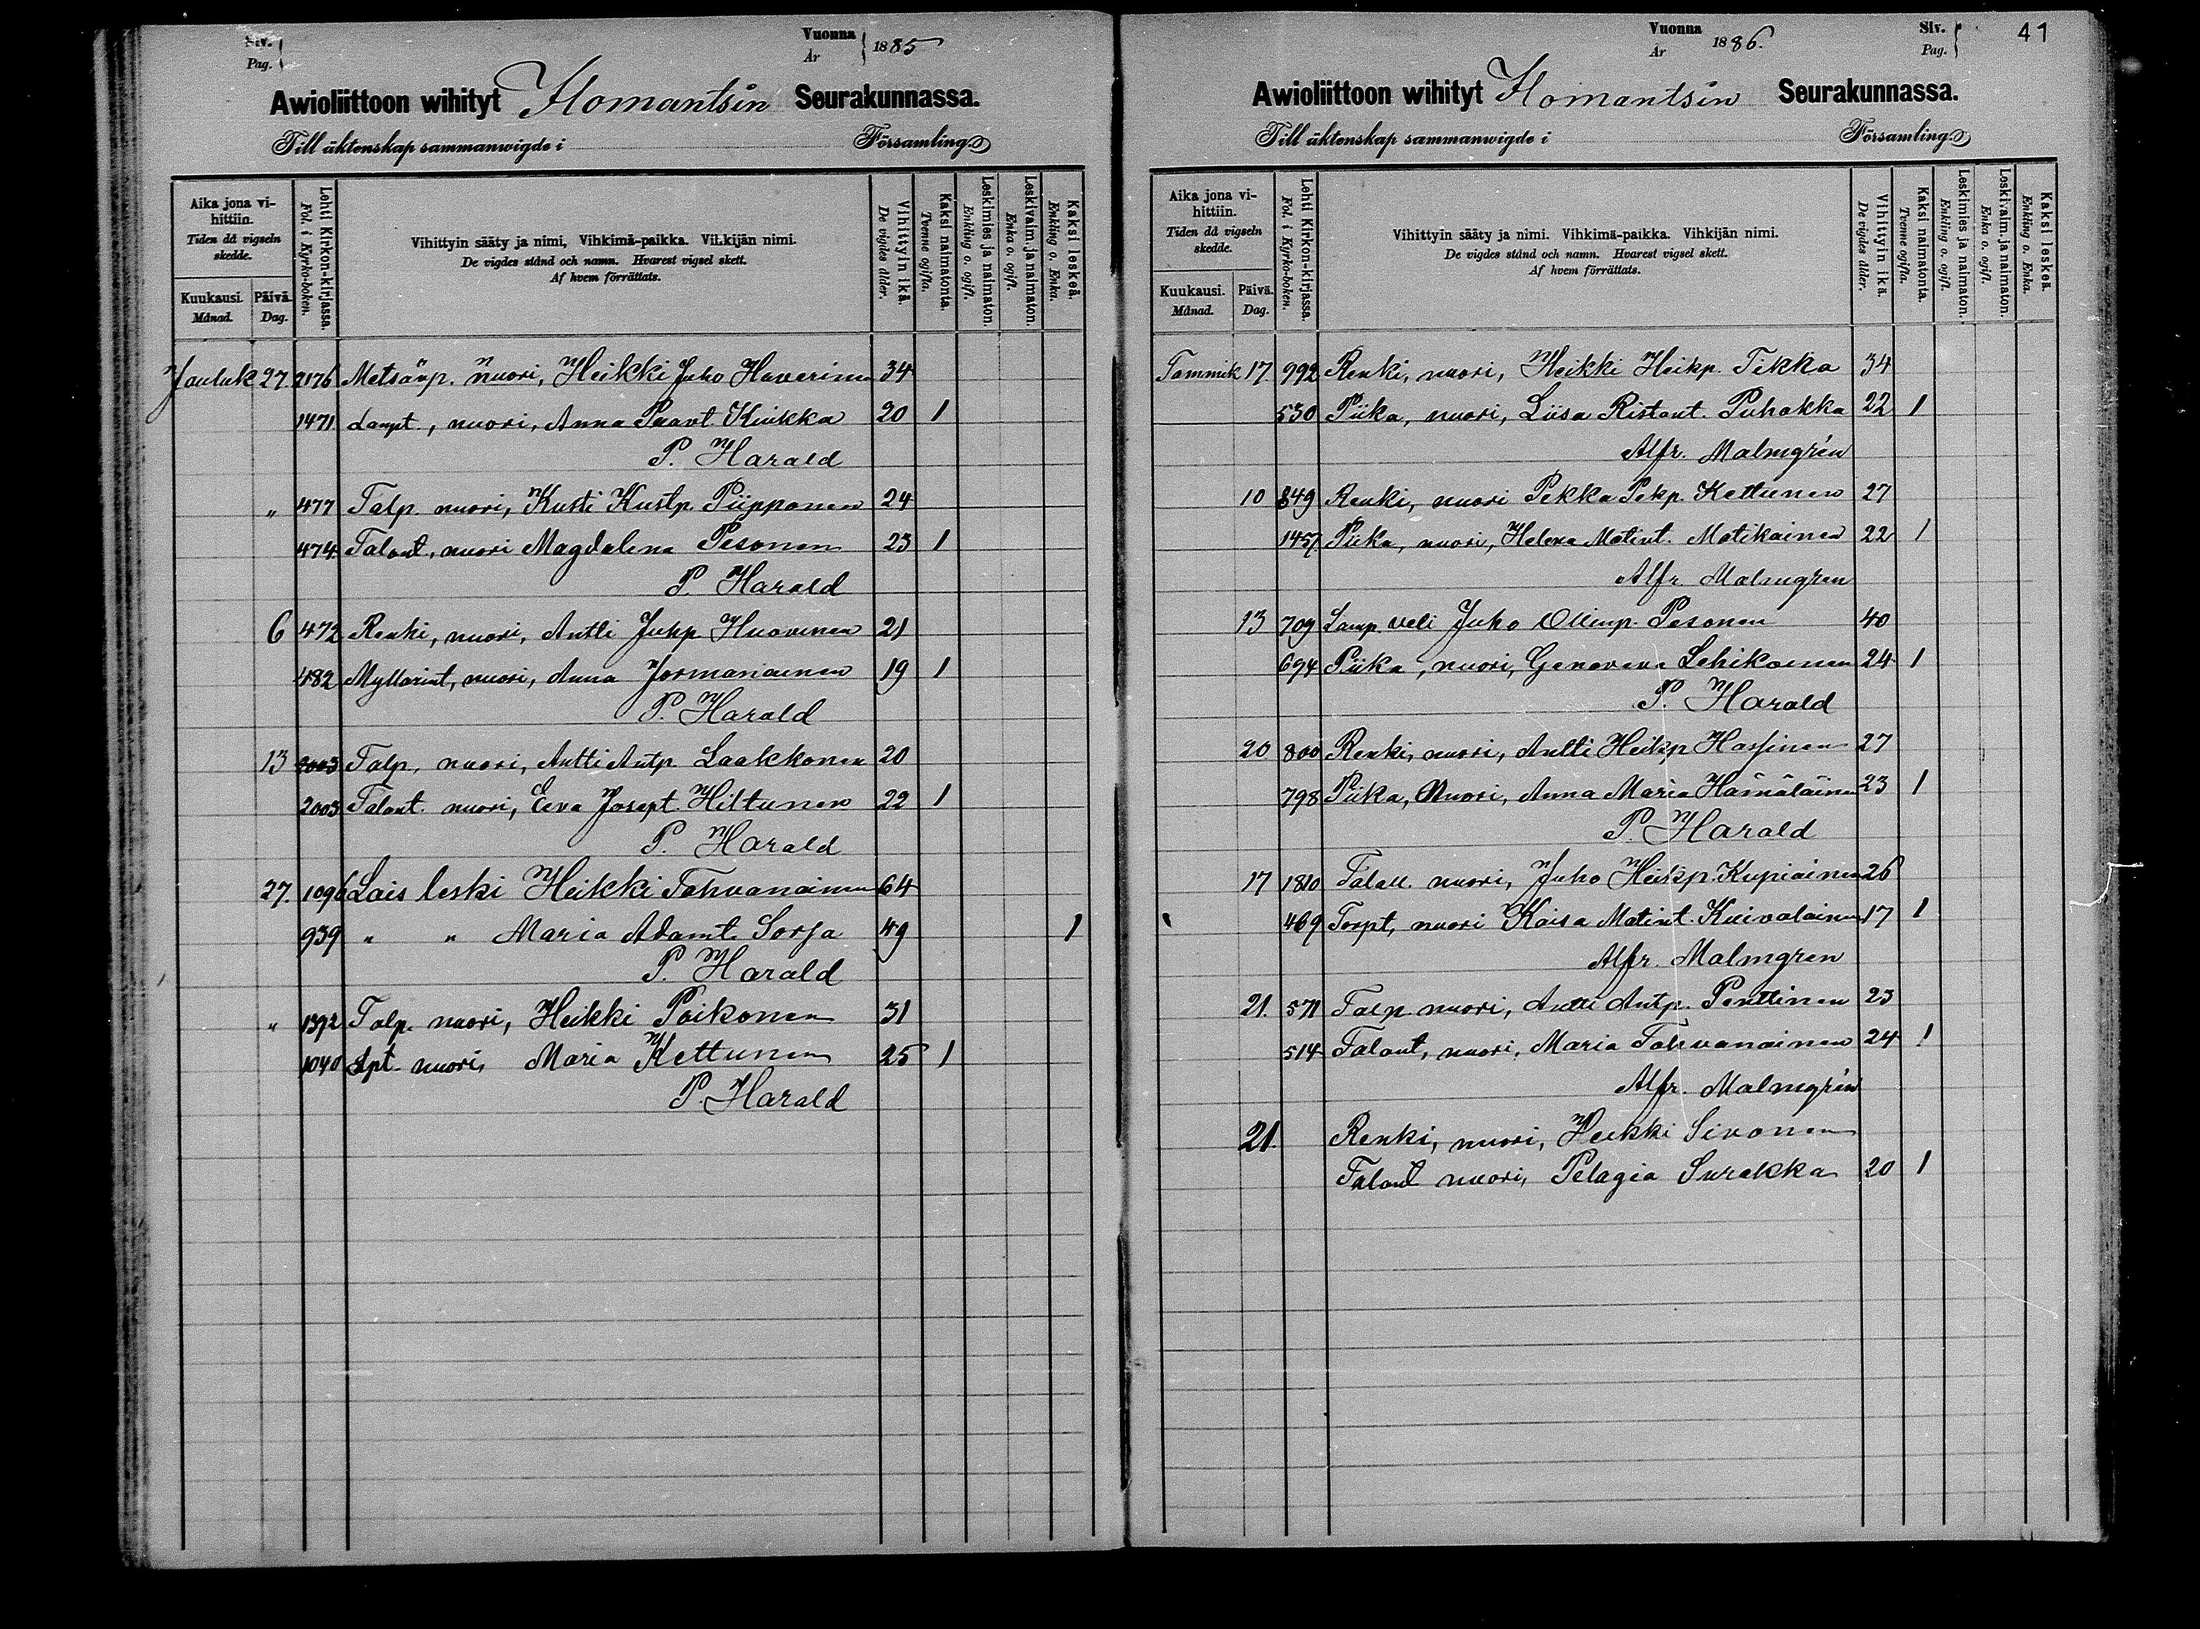 Siv. Pag.
Vuonna År 1885
Awioliittoon wihityt Ilomantsin Seurakunnassa.
Till äktenskap sammanwigde i Församling
Aika jona vihittiin. Tiden då vigseln skedde.
Kuukausi. Månad.
Päivä. Dag.
Lehti Kirkon-kirjassa. Fol. i Kyrko-boken.
Vihittyin sääty ja nimi, Vihkimä-paikka. Vihkijän nimi.
De vigdes stånd och namn. Hvarest vigsel skett.
Af hvem förrättats.
Vihittyin ikä. De vigdes ålder.
Kaksi naimatonta. Tvenne ogifta.
Leskimies ja naimaton. Enkling o. ogift.
Leskivaim. ja naimaton. Enka o. ogift.
Kaksi leskeä. Enkling o. Enka.
Jouluk 27 2176 Metsävp. nuori, Heikki Juho Haverinen 34
1471 Lampt., nuori, Anna Paavt. Kiukka 20 1
P. Harald
" 477 Talp. nuori, Kusti Kustp. Piipponen 24
474 Talont, nuori Magdalena Pesonen 23 1
P. Harald
6 472 Renki, nuori, Antti Juhp Huovinen 21
482 Myllärint, nuori, Anna Jormanainen 19 1
P. Harald
13 2003 Talp, nuori, Antti Antp Laakkonen 20
2003 Talont. nuori, Eeva Josept. Hiltunen 22 1
P. Harald
27. 1096 Lois leski Heikki Tahvanainen 64
939 " " Maria Adamt. Sorsa 49 1
P. Harald
" 1392 Talp. nuori, Heikki Poikonen 31
1040 Lpt. nuori, Maria Kettunen 25 1
P. Harald
Vuonna År 1886.
Siv. Pag. 41
Awioliittoon wihityt Ilomantsin Seurakunnassa.
Till äktenskap sammanwigde i Församling
Aika jona vihittiin. Tiden då vigseln skedde.
Kuukausi. Månad.
Päivä. Dag.
Lehti Kirkon-kirjassa. Fol. i Kyrko-boken.
Vihittyin sääty ja nimi. Vihkimä-paikka. Vihkijän nimi.
De vigdes stånd och namn. Hvarest vigsel skett.
Af hvem förrättats.
Vihittyin ikä. De vigdes ålder.
Kaksi naimatonta. Tvenne ogifta.
Leskimies ja naimaton. Enkling o. ogift.
Leskivaim. ja naimaton. Enka o. ogift.
Kaksi leskeä. Enkling o. Enka.
Tammik 17. 992 Renki, nuori, Heikki Heikp. Tikka 34
530 Piika, nuori, Liisa Ristont. Puhakka 22 1
Alfr. Malmgrén
10 849 Renki, nuori Pekka Pekp. Kettunen 27
1457 Piika, nuori, Helena Matint. Matikainen 22 1
Alfr. Malmgren
13 709 Lamp. veli Juho Ollinp. Pesonen 40
694 Piika, nuori, Genoveva Lehikoinen 24 1
P. Harald
20 800 Renki, nuori, Antti Heikp. Hassinen 27
798 Piika, Nuori, Anna Maria Hämäläinen 23 1
P. Harald
17 1810 nuori, Juho Heikp. Kupiainen 26
469 Torpt, nuori Kaisa Matint. Kuivalainen 17 1
Alfr. Malmgren
21. 571 Talp nuori, Antti Antp. Penttinen 23
514 Talont, nuori, Maria Tahvanainen 24 1
Alfr. Malmgrén
21. Renki, nuori, Heikki Sivonen
Talont nuori, Pelagia Surakka 20 1